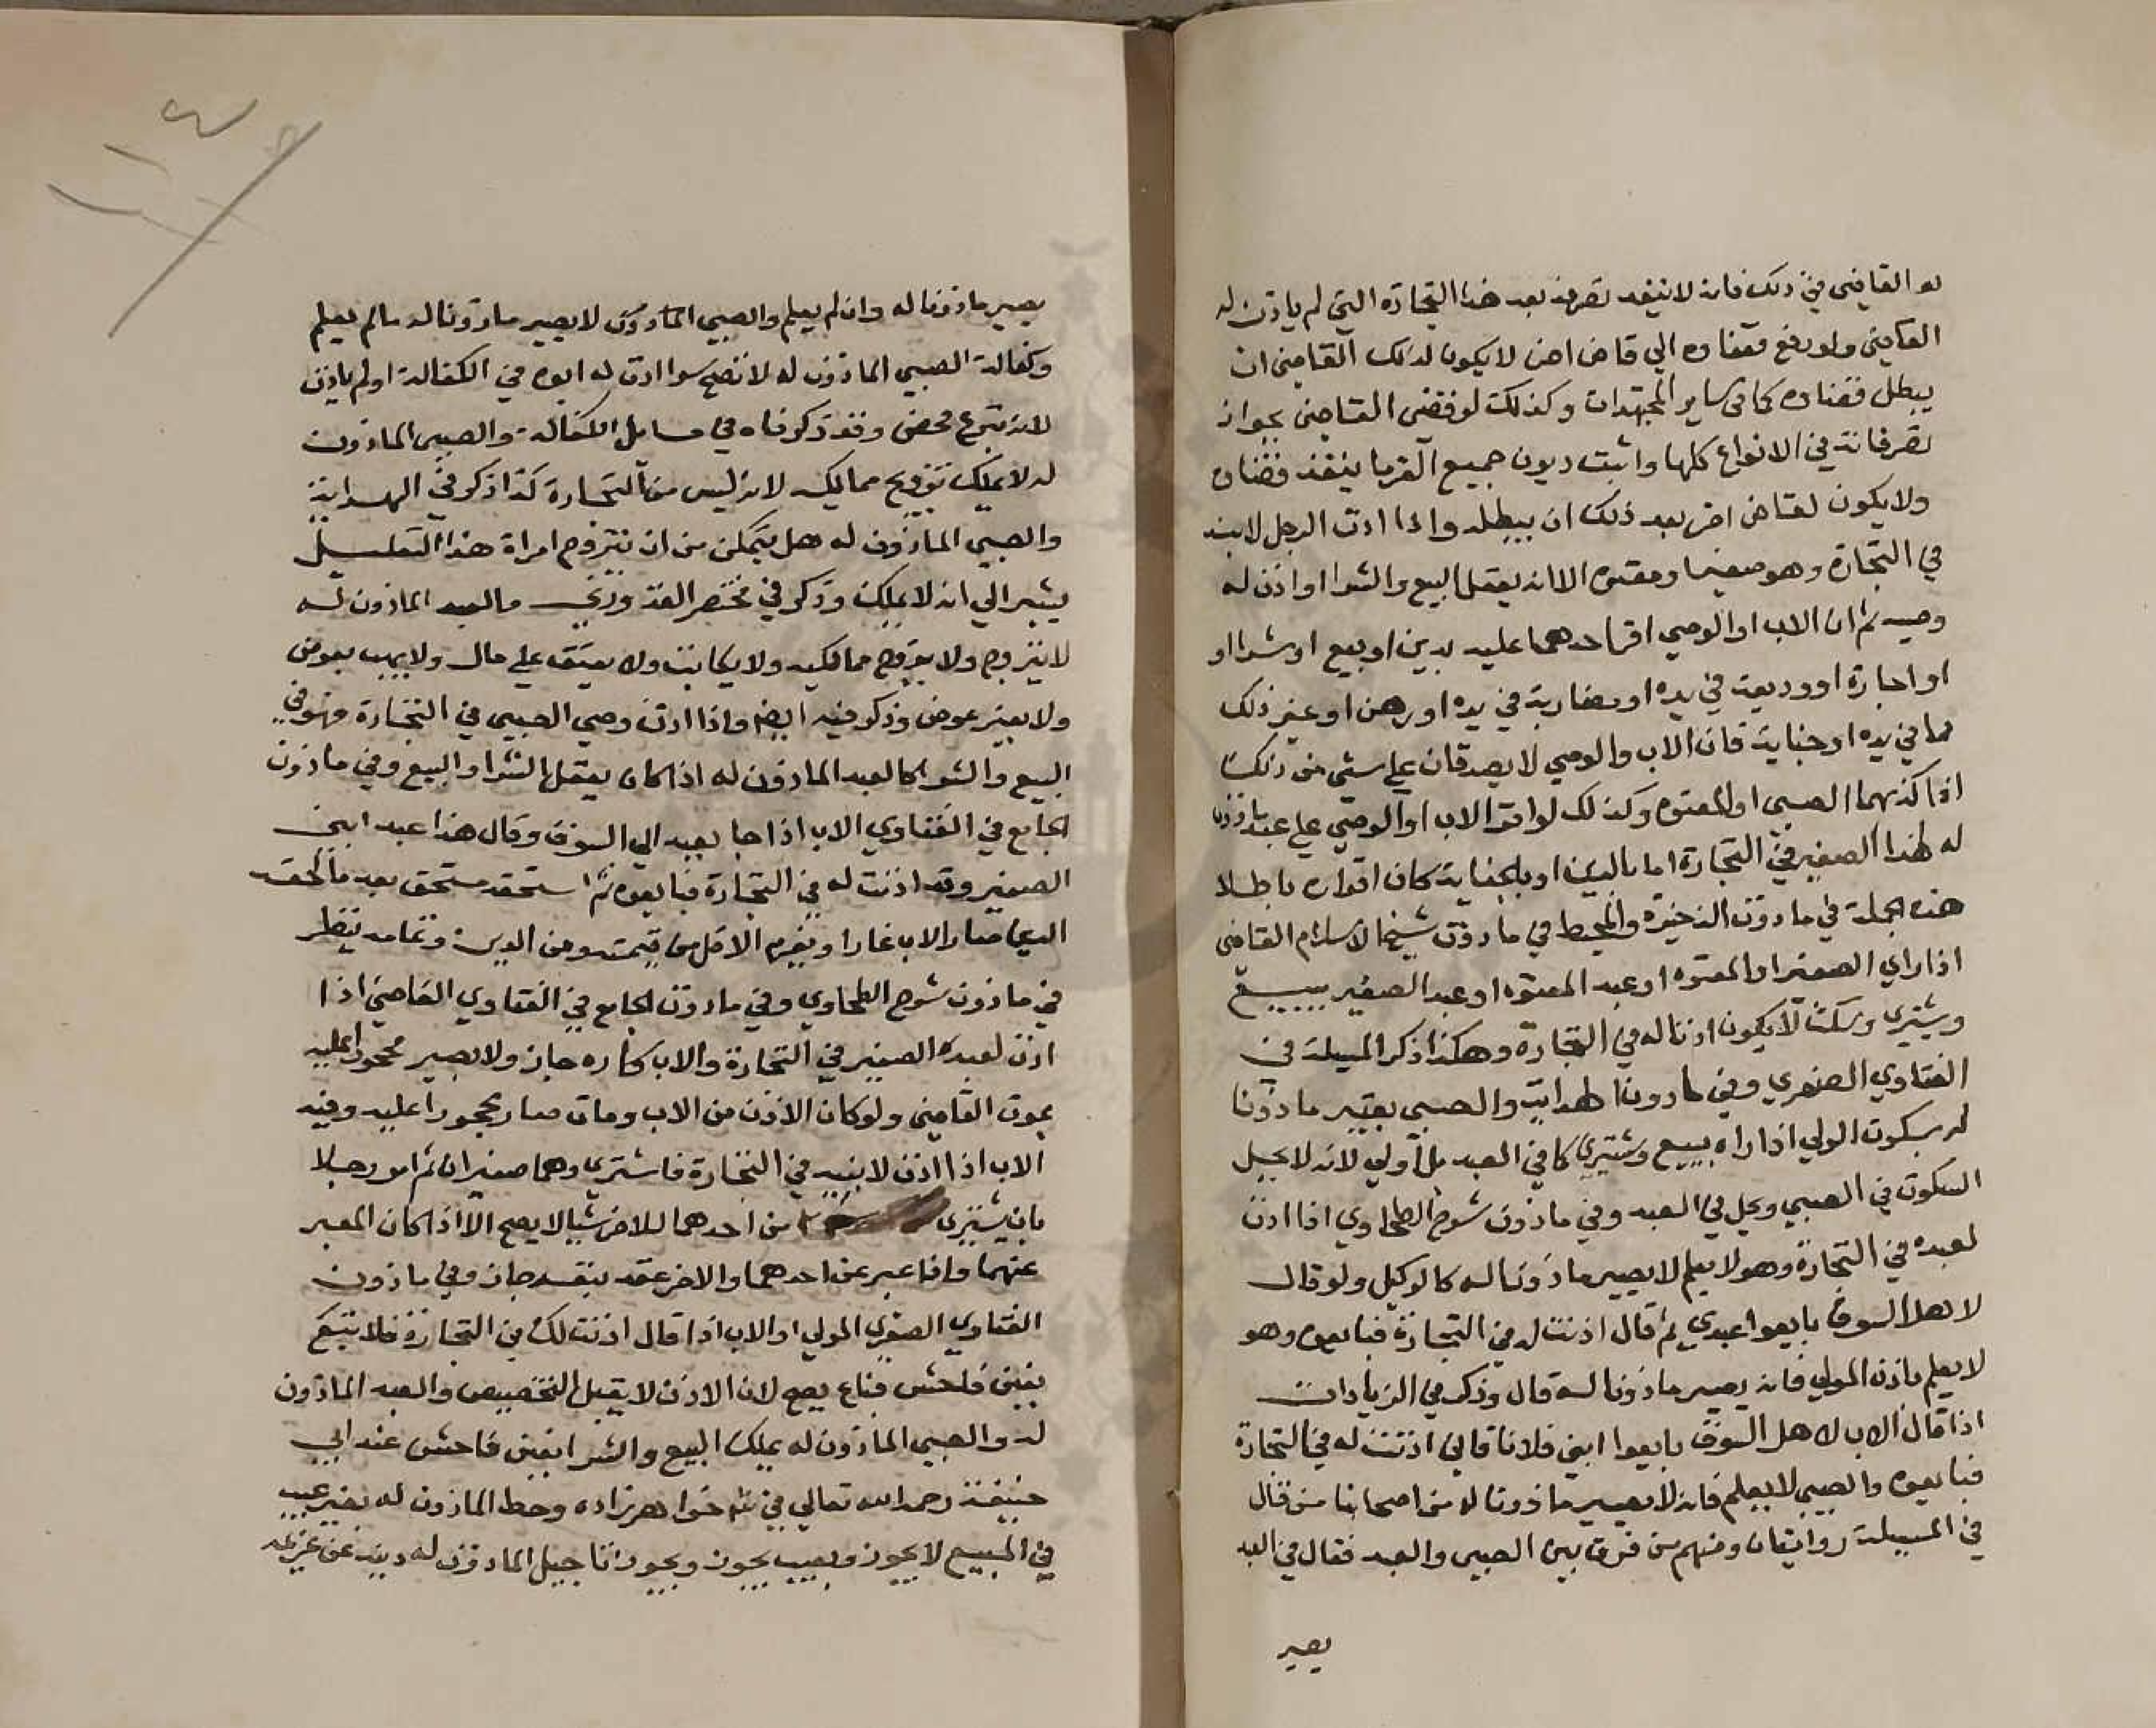 له القاضي في ذلك فانه لا ينفد تصرفه بعد هذا التجارة التي لم ياذن له
القاضي ولو رفع قضاوه الي قاض اخر لا يكون لذلك القاضي ان
يبطل قضاوه كما في ساير المجتهدات وكذلك لو قضى القاضي بجواز
تصرفاته في الانواع كلها واثبت ديون جميع الغرما ينفذ قضاوه
ولا يكون لقاض اخر بعد ذلك ان يبطله واذا اذن الرجل لابنه
في التجارة وهو صغير او معتوه الا انه يعقل البيع والشرا او اذن له
وصيه ثم ان الاب او الوصي اقر احدهما عليه بدين او بيع او شرا او
او اجارة او وديعة في يده او مضاربة في يده او رهن او غير ذلك
مما في يده او جناية فان الاب والوصي لا يصدقان علي شي من ذلك
اذا كذبهما الصبي او المعتوه وكذلك لو اقر الاب او الوصي علي عبد ماذون
له لهذا الصغير في التجارة اما بالدين او بالجناية كان اقراره باطلا
هذه الجملة في ماذون الذخيرة والمحيط في ماذون شيخ الاسلام القاضي
اذا راي الصغير او المعتوه او عبد المعتوه او عبد الصغير يبيع
ويشتري وسكت لا يكون اذنا له في التجارة وهكذا ذكر المسيلة في
الفتاوي الصغري وفي ماذون الهداية والصبي يعتبر ماذونا
له بسكوت الولي اذا راه يبيع ويشتري كما في العبد بل اولي لانه لا يحل
السكوت في الصبي ويحل في العبد وفي ماذون شرح الطحاوي اذا اذن
لعبده في التجارة وهو لا يعلم لا يصير ماذونا له كالوكيل ولو قال
لاهل السوق بايعوا عبدي ثم قال اذنت له في التجارة فبايعوه وهو
لا يعلم باذن المولي فانه يصير ماذونا له قال وذكر في الزيادات
اذا قال الاب لاهل السوق بايعوا ابني فلانا فاني اذنت له في التجارة
فبايعوه والصبي لا يعلم فانه لا يصير ماذونا له من اصحابنا من قال
في المسيلة روايتان ومنهم من فرق بين الصبي والعبد فقال في العبد
يصير
يصير ماذونا له وان لم يعلم والصبي الماذون لا يصير ماذونا له مالم يعلم
وكفالة الصبي الماذون له لا تصح سوا اذن له ابوه في الكفالة او لم ياذن
لانه تبرع محض وقد ذكرناه في مسايل الكفالة والصبي الماذون
له لا يملك تزويج مماليكه لانه ليس من التجارة كذا ذكر في الهداية
والصبي الماذون له هل يتمكن من ان يتزوج امراة هذا التعليل
يشير الي انه لا يملك وذكر في مختصر القدوري والعبد الماذون له
لا يتزوج ولا يزوج مماليكه ولا يكاتب ولا يعتق علي مال ولا يهب بعوض
ولا بغير عوض وذكر فيه ايضا واذا اذن وصي الصبي في التجارة فهو في
البيع والشرا كالعبد الماذون له اذا كان يعقل الشرا والبيع وفي ماذون
الجامع في الفتاوي الاب اذا جا بعبد الي السوق وقال هذا عبد ابني
الصغير وقد اذنت له في التجارة فبايعوه ثم استحقه مستحق بعد ما لحقه
الدين صار الاب غارا ويغرم الاقل من قيمته ومن الدين وتمامه ينظر
في ماذون شرح الطحاوي وفي ماذون الجامع في الفتاوي القاضي اذا
اذن لعبد الصغير في التجارة والاب كاره جاز ولا يصير محجورا عليه
بموت القاضي ولو كان الاذن من الاب ومات صار محجورا عليه وفيه
الاب اذا اذن لابنيه في التجارة فاشتري وهما صغيران ثم امر رجلا
بان يشتري من احدهما للاخر شيا لا يصح الا اذا كان المعبر
عنهما واذا عبر عن احدهما والاخر عقد بنفسه جاز وفي ماذون
الفتاوي الصغري المولي او الاب اذا قال اذنت لك في التجارة فلا تبع
بغبن فاحش فباع يصح لان الاذن لا يقبل التخصيص والعبد الماذون
له والصبي الماذون له يملك البيع والشرا بغبن فاحش عند ابي
حنيفة رحمه الله تعالي في خواهرزاده وحط الماذون له بغير عيب
في المبيع لا يجوز وبعيب يجوز ويجوز تاجيل الماذون له دينه عن غريمه